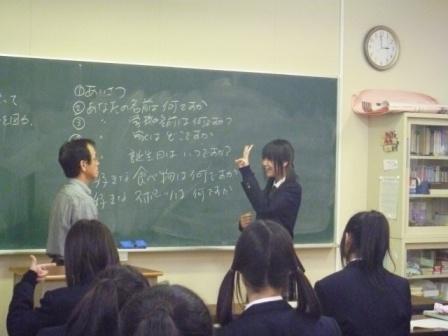 って
を図る.
①あいさつ
②あなたの名前は何ですか
③ 〃 家族の名前は何ですか
〃 家はどこですか
誕生日はいつですか?
好きな食べ物は何ですか
好きなスポーツは何ですか